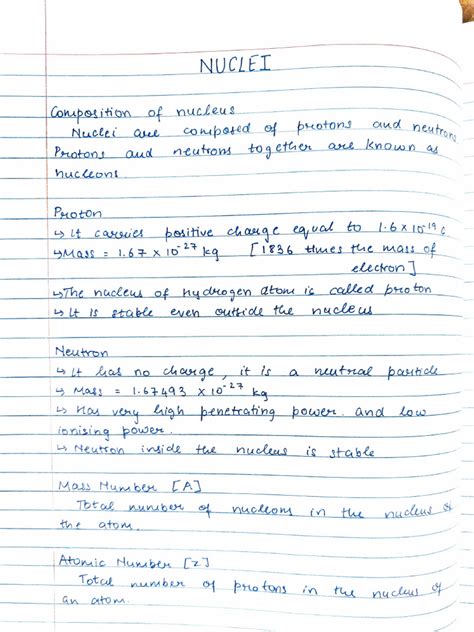 NUCLEI
Composition of nucleus
Nuclei are composed of protons and neutrons
Protons and neutrons together are known as
nucleons
Proton
↳ It carries positive charge equal to 1.6 x 10⁻¹⁹ C
↳ Mass = 1.67 x 10⁻²⁷ kg [1836 times the mass of
electron]
↳ The nucleus of hydrogen atom is called proton
↳ It is stable even outside the nucleus
Neutron
↳ It has no charge, it is a neutral particle
↳ Mass = 1.67493 x 10⁻²⁷ kg
↳ Has very high penetrating power. and low
ionising power.
↳ Neutron inside the nucleus is stable
Mass Number [A]
Total number of nucleons in the nucleus of
the atom.
Atomic Number [Z]
Total number of protons in the nucleus of
an atom.